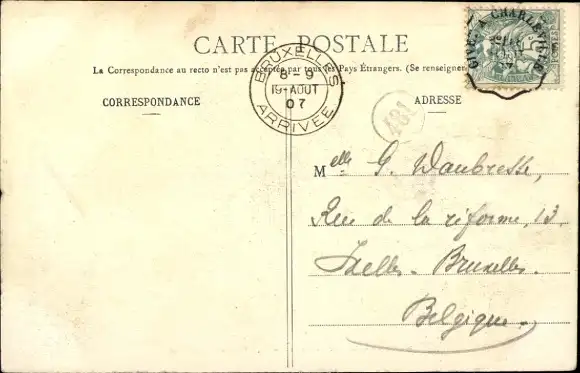 CARTE POSTALE
La Correspondance au recto n'est pas acceptée par tous les Pays Étrangers. (Se renseigner
CORRESPONDANCE
ADRESSE
BRUXELLES
8-9
19-AOUT
07
ARRIVÉE
GIVET A CHARLEVILLE
481
Melle G. Waubresse,
Rue de la réforme, 13
Ixelles - Bruxelles.
Belgique.